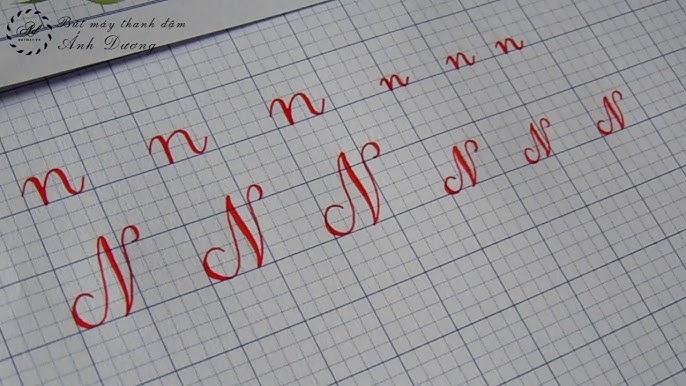 Bút máy thanh đậm
Ánh Dương
n n n n n n
N N N N N N